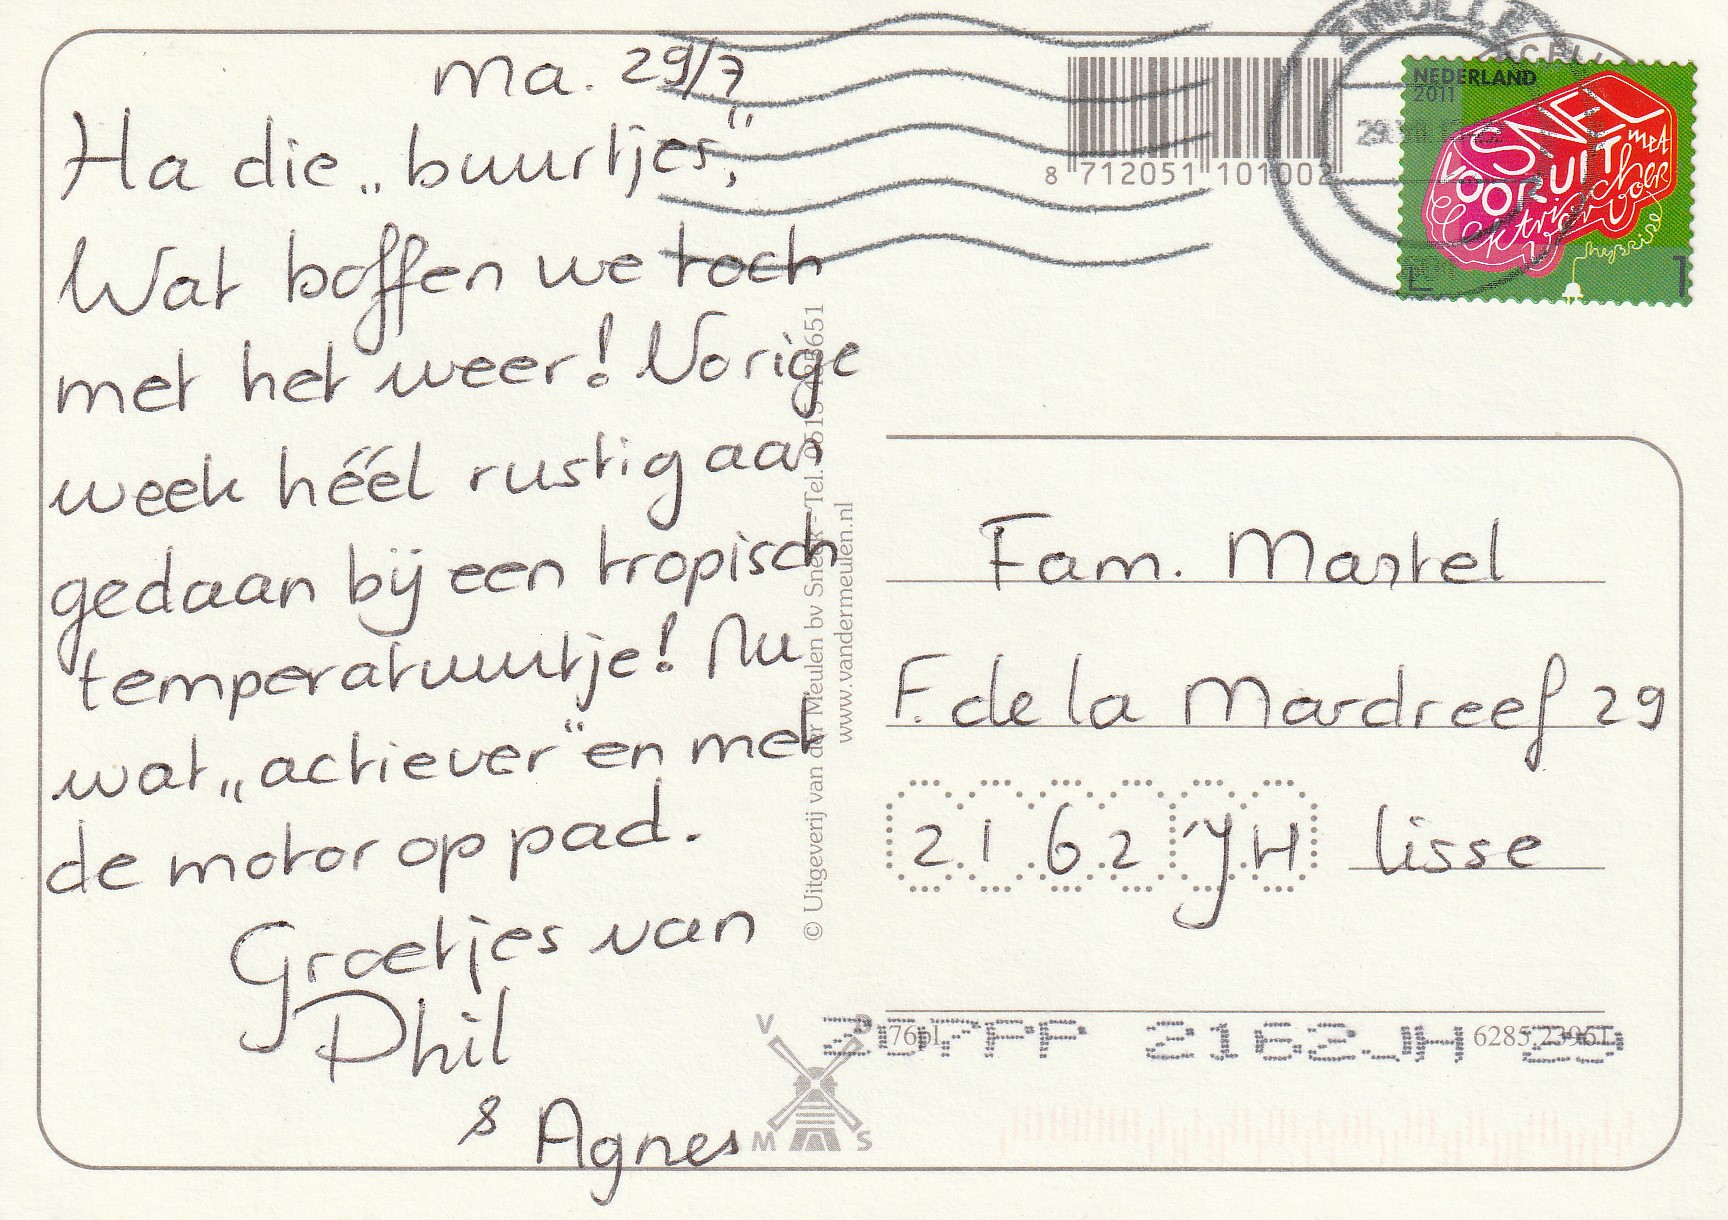 ma. 29/7
Ha die „buurtjes",
Wat boffen we toch
met het weer! Vorige
week héél rustig aan
gedaan bij een tropisch
temperatuurtje! Nu
wat „actiever" en met
de motor op pad.
Groetjes van
Phil
& Agnes
8 712051 101002
ZWOLLE
NEDERLAND
2011
SNEL
VOORUIT
met
elektrisch
vervoer
hybride
1
© Uitgeverij van der Meulen bv Sneek - Tel.
www.vandermeulen.nl
Fam. Martel
F. de la Mardreef 29
2162 JH lisse
V D
M S
2162JH 29